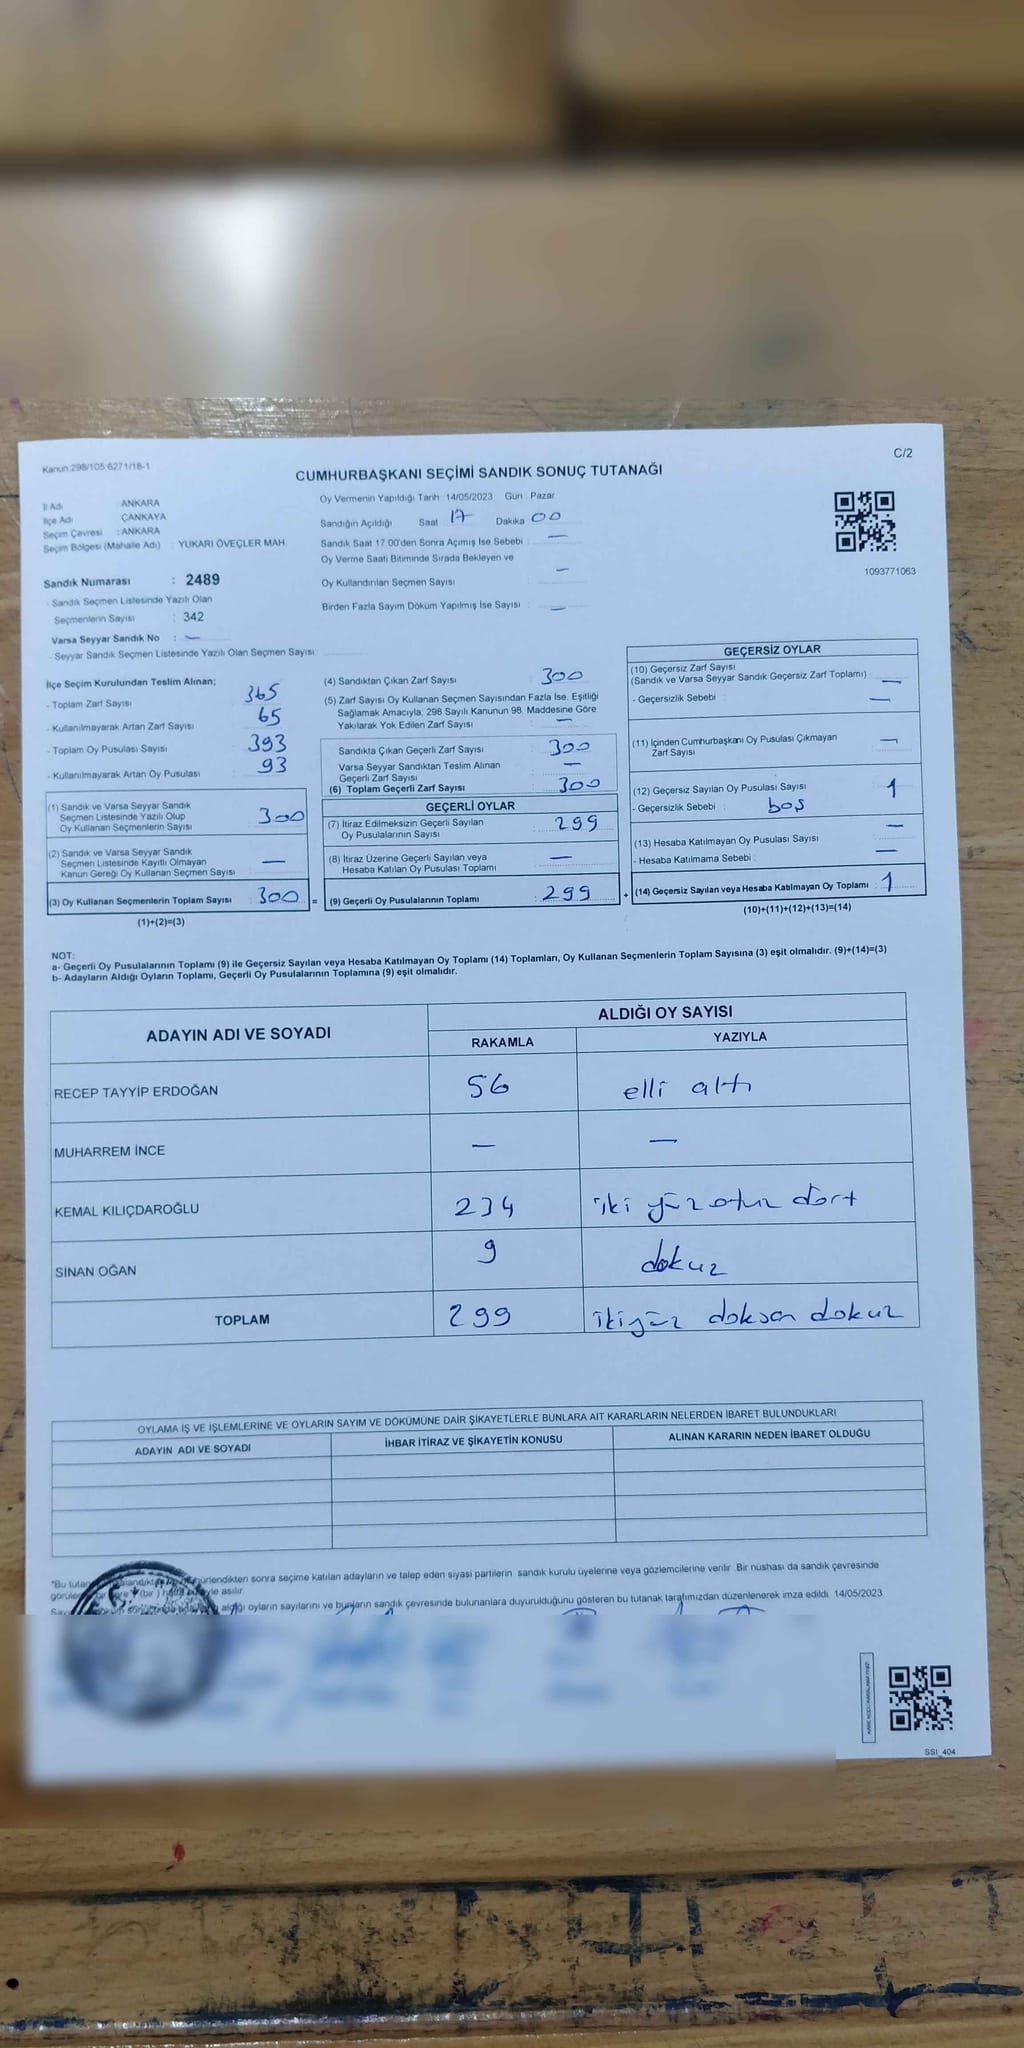 Kanun:298/105,6271/18-1
C/2
CUMHURBAŞKANI SEÇİMİ SANDIK SONUÇ TUTANAĞI
İl Adı : ANKARA
İlçe Adı : ÇANKAYA
Seçim Çevresi : ANKARA
Seçim Bölgesi (Mahalle Adı) : YUKARI ÖVEÇLER MAH.
Sandık Numarası : 2489
- Sandık Seçmen Listesinde Yazılı Olan
Seçmenlerin Sayısı : 342
Varsa Seyyar Sandık No : —
- Seyyar Sandık Seçmen Listesinde Yazılı Olan Seçmen Sayısı:
Oy Vermenin Yapıldığı Tarih : 14/05/2023 Gün : Pazar
Sandığın Açıldığı Saat 17 Dakika 00
Sandık Saat 17:00'den Sonra Açımış İse Sebebi : —
Oy Verme Saati Bitiminde Sırada Bekleyen ve
Oy Kullandırılan Seçmen Sayısı : —
Birden Fazla Sayım Döküm Yapılmış İse Sayısı : —
1093771063
İlçe Seçim Kurulundan Teslim Alınan;
- Toplam Zarf Sayısı : 365
- Kullanılmayarak Artan Zarf Sayısı : 65
- Toplam Oy Pusulası Sayısı : 393
- Kullanılmayarak Artan Oy Pusulası : 93
(1) Sandık ve Varsa Seyyar Sandık
Seçmen Listesinde Yazılı Olup
Oy Kullanan Seçmenlerin Sayısı : 300
(2) Sandık ve Varsa Seyyar Sandık
Seçmen Listesinde Kayıtlı Olmayan
Kanun Gereği Oy Kullanan Seçmen Sayısı : —
(3) Oy Kullanan Seçmenlerin Toplam Sayısı : 300 =
(1)+(2)=(3)
(4) Sandıktan Çıkan Zarf Sayısı : 300
(5) Zarf Sayısı Oy Kullanan Seçmen Sayısından Fazla İse, Eşitliği
Sağlamak Amacıyla, 298 Sayılı Kanunun 98. Maddesine Göre
Yakılarak Yok Edilen Zarf Sayısı : —
Sandıkta Çıkan Geçerli Zarf Sayısı : 300
Varsa Seyyar Sandıktan Teslim Alınan
Geçerli Zarf Sayısı : —
(6) Toplam Geçerli Zarf Sayısı : 300
GEÇERLİ OYLAR
(7) İtiraz Edilmeksizin Geçerli Sayılan
Oy Pusulalarının Sayısı : 299
(8) İtiraz Üzerine Geçerli Sayılan veya
Hesaba Katılan Oy Pusulası Toplamı : —
(9) Geçerli Oy Pusulalarının Toplamı : 299 +
GEÇERSİZ OYLAR
(10) Geçersiz Zarf Sayısı
(Sandık ve Varsa Seyyar Sandık Geçersiz Zarf Toplamı) : —
- Geçersizlik Sebebi : —
(11) İçinden Cumhurbaşkanı Oy Pusulası Çıkmayan
Zarf Sayısı : —
(12) Geçersiz Sayılan Oy Pusulası Sayısı : 1
- Geçersizlik Sebebi : boş
(13) Hesaba Katılmayan Oy Pusulası Sayısı : —
- Hesaba Katılmama Sebebi : —
(14) Geçersiz Sayılan veya Hesaba Katılmayan Oy Toplamı : 1
(10)+(11)+(12)+(13)=(14)
NOT:
a- Geçerli Oy Pusulalarının Toplamı (9) ile Geçersiz Sayılan veya Hesaba Katılmayan Oy Toplamı (14) Toplamları, Oy Kullanan Seçmenlerin Toplam Sayısına (3) eşit olmalıdır. (9)+(14)=(3)
b- Adayların Aldığı Oyların Toplamı, Geçerli Oy Pusulalarının Toplamına (9) eşit olmalıdır.
ADAYIN ADI VE SOYADI ALDIĞI OY SAYISI
RAKAMLA YAZIYLA
RECEP TAYYİP ERDOĞAN 56 elli altı
MUHARREM İNCE — —
KEMAL KILIÇDAROĞLU 234 iki yüz otuz dört
SİNAN OĞAN 9 dokuz
TOPLAM 299 ikiyüz doksan dokuz
OYLAMA İŞ VE İŞLEMLERİNE VE OYLARIN SAYIM VE DÖKÜMÜNE DAİR ŞİKAYETLERLE BUNLARA AİT KARARLARIN NELERDEN İBARET BULUNDUKLARI
ADAYIN ADI VE SOYADI İHBAR İTİRAZ VE ŞİKAYETİN KONUSU ALINAN KARARIN NEDEN İBARET OLDUĞU
sonra seçime katılan adayların ve talep eden siyasi partilerin sandık kurulu üyelerine veya gözlemcilerine verilir. Bir nüshası da sandık çevresinde
(bir) asılır.
aldığı oyların sayılarını ve bunların sandık çevresinde bulunanlara duyurulduğunu gösteren bu tutanak tarafımızdan düzenlenerek imza edildi. 14/05/2023
SSI_404